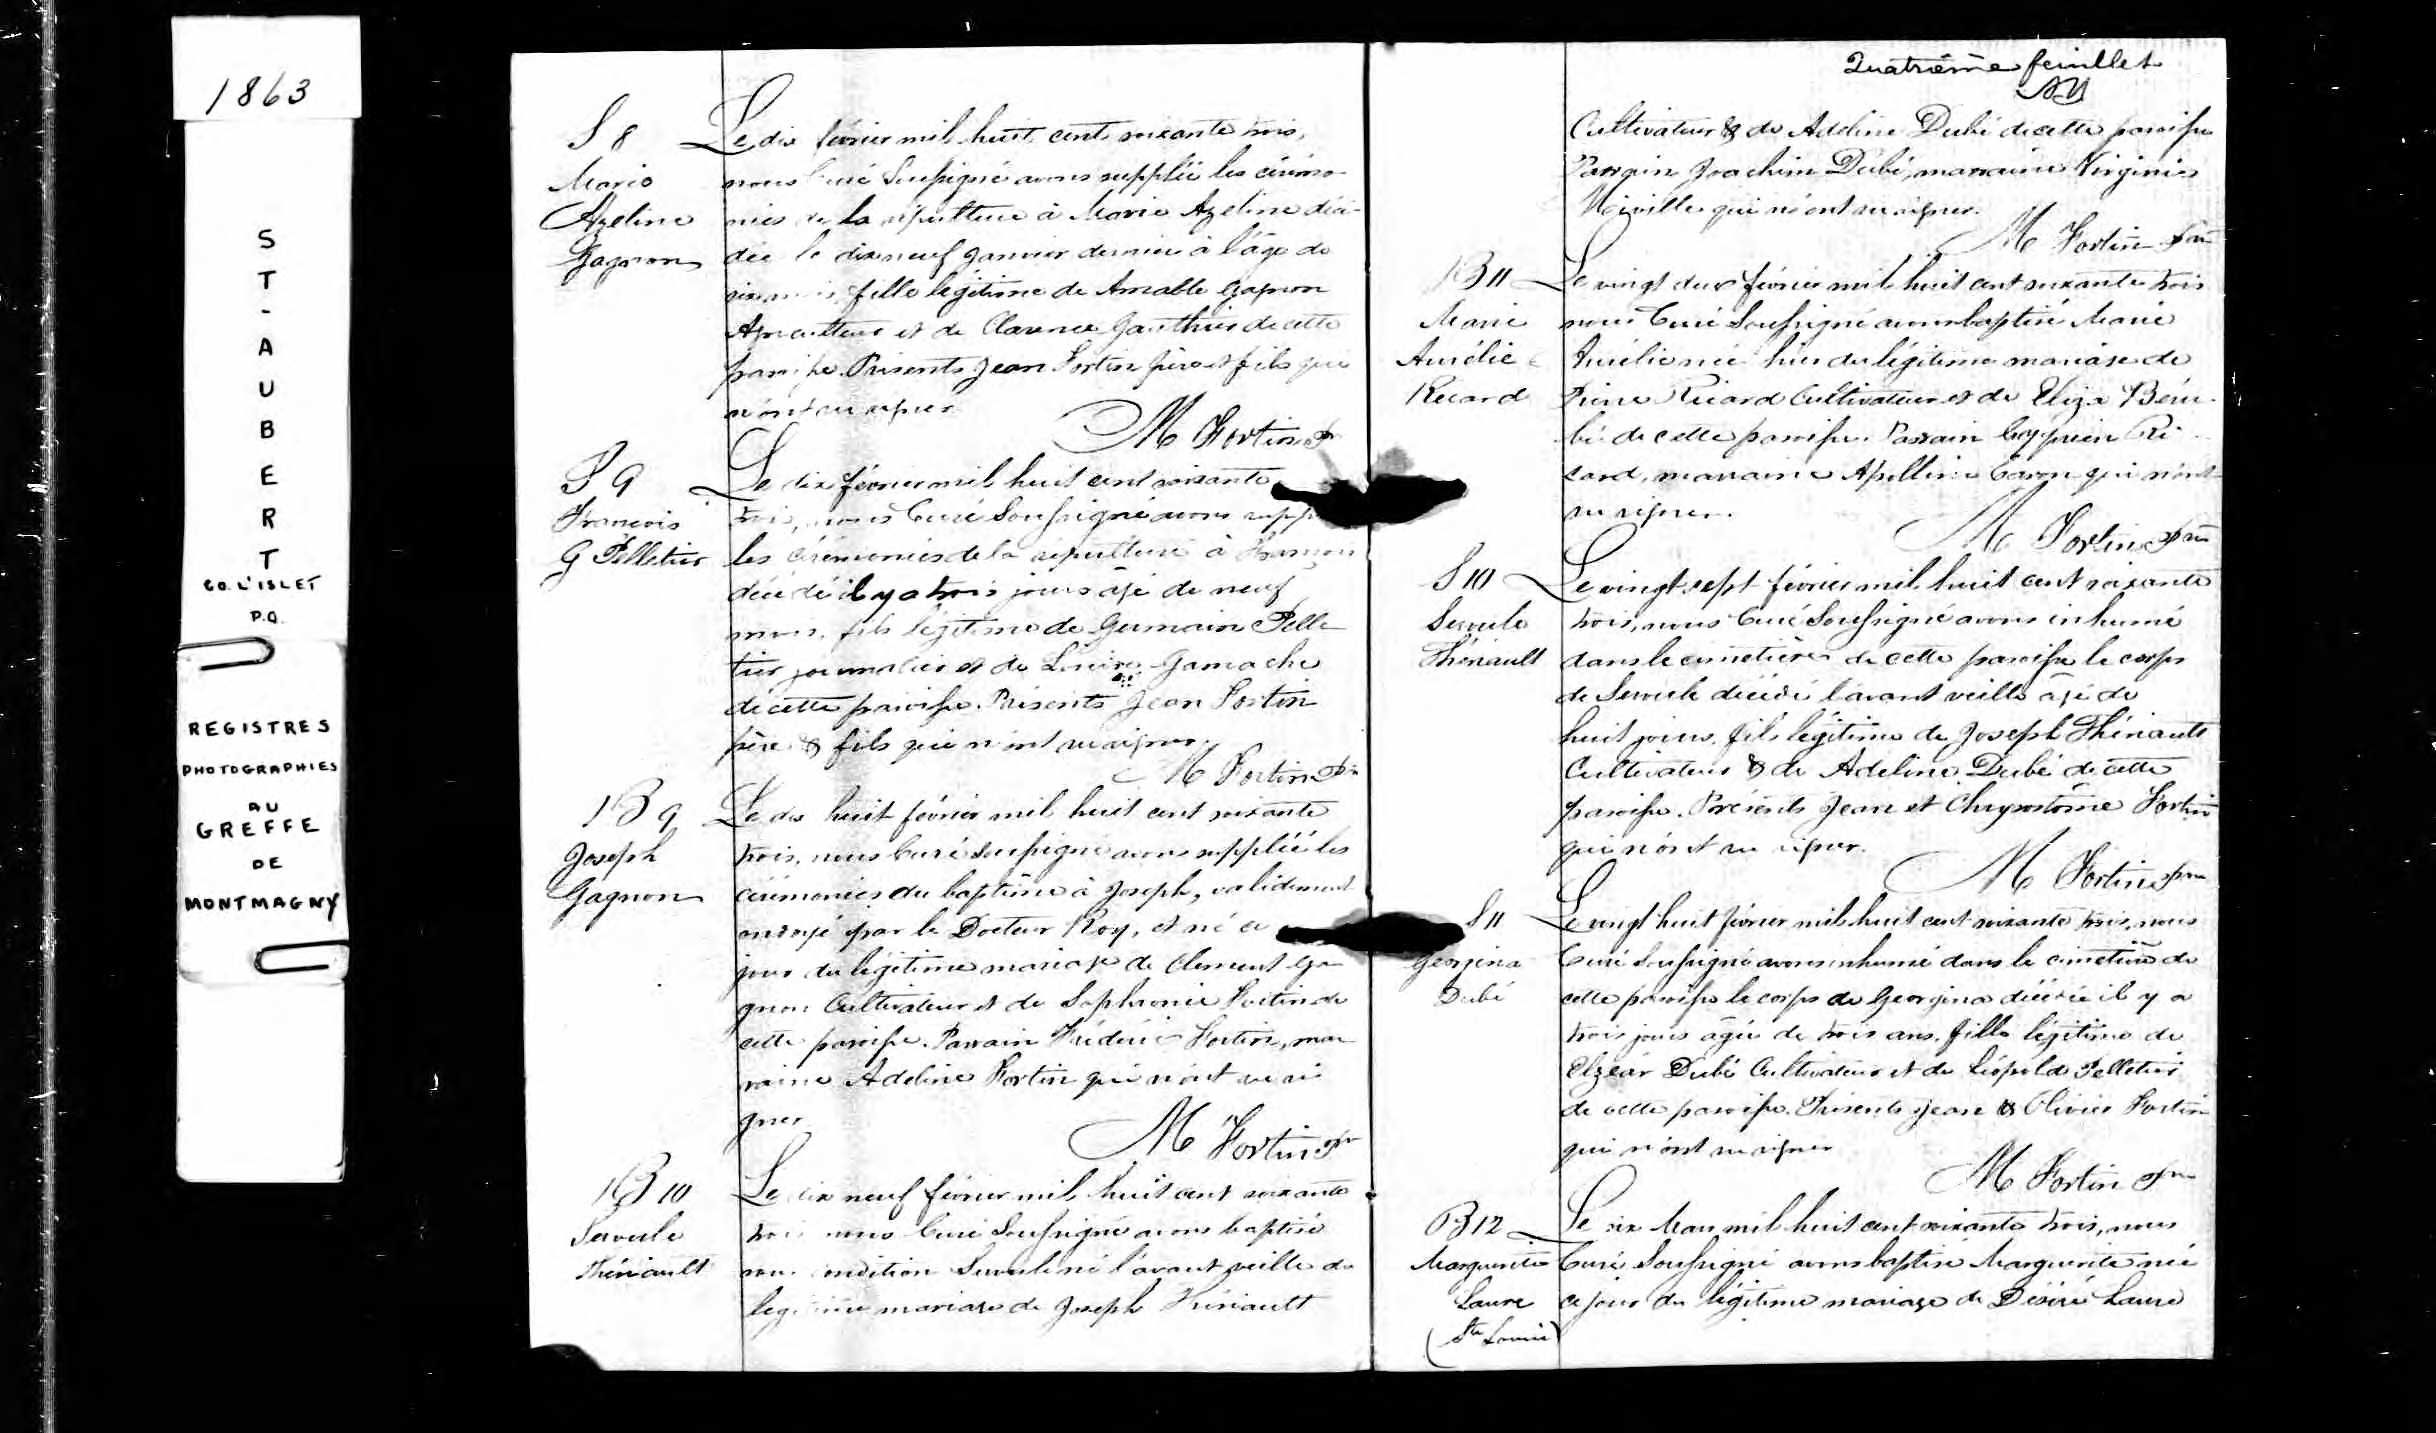 1863
S
T
-
A
U
B
E
R
T
CO. L'ISLET
P.Q.
REGISTRES
PHOTOGRAPHIES
AU
GREFFE
DE
MONTMAGNY
S 8
Marie
Azeline
Gagnon
Le dix février mil huit cent soixante trois,
nous Curé Soussigné avons supplée les cérémo-
nies de la sépulture à Marie Azeline décé-
dée le dix neuf Janvier dernier à l'âge de
six mois, fille légitime de Amable Gagnon
Agriculteur et de Clarence Gauthier de cette
paroisse. Présents Jean Fortin père et fils qui
n'ont su signer
M Fortin Ptre
S 9
François
G Pelletier
Le dix février mil huit cent soixante
trois, nous Curé Soussigné avons supp
les cérémonies de la sépulture à François
décédé il y a trois jours âgé de neuf
mois, fils légitime de Germain Pelle-
tier journalier et de Gamache
de cette paroisse. Présents Jean Fortin
père & fils qui n'ont su signer.
M Fortin Ptre
B 9
Joseph
Gagnon
Le dix huit février mil huit cent soixante
trois, nous Curé Soussigné avons supplée les
cérémonies du baptême à Joseph, validement
ondoyé par le Docteur Roy, et né ce
jour du légitime mariage de Clement Ga-
gnon Cultivateur et de Sophronie Fortin de
cette paroisse. Parrain Fréderic Fortin, mar-
raine Adeline Fortin qui n'ont su si
gner
M Fortin Ptre
B 10
Servule
Thériault
Le dix neuf février mil huit cent soixante
trois nous Curé Soussigné avons baptisé
sous condition Servule né l'avant veille du
légitime mariage de Joseph Thériault
Quatrième feuillet
Cultivateur & de Adeline Dubé de cette paroisse
Parrain Joachim Dubé, marraine Virginie
Miville qui n'ont su signer.
M Fortin Ptre
B 11
Marie
Aurélie
Ricard
Le vingt deux février mil huit cent soixante trois
nous Curé Soussigné avons baptisé Marie
Aurélie née hier du légitime mariage de
Pierre Ricard Cultivateur et de Eliza Béru-
bé de cette paroisse. Parrain Cyprien Ri-
card, marraine Apolline Caron qui n'ont
su signer.
M Fortin Ptre
S 10
Servule
Thériault
Le vingt sept février mil huit cent soixante
trois, nous Curé Soussigné avons inhumé
dans le cimetière de cette paroisse le corps
de Servule décédé l'avant veille âgé de
huit jours, fils légitime de Joseph Thériault
Cultivateur & de Adeline Dubé de cette
paroisse. Présents Jean et Chrysostôme Fortin
qui n'ont su signer.
M Fortin Ptre
S 11
Georgina
Dubé
Le vingt huit février mil huit cent soixante trois, nous
Curé Soussigné avons inhumé dans le cimetière de
cette paroisse le corps de Georgina décédée il y a
trois jours âgée de trois ans, fille légitime de
Elzéar Dubé Cultivateur et de Léopolde Pelletier
de cette paroisse. Présents Jean & Olivier Fortin
qui n'ont su signer
M Fortin Ptre
B 12
Marguerite
Laure
(
Le six Mars mil huit cent soixante trois, nous
Curé Soussigné avons baptisé Marguerite née
ce jour du légitime mariage de Désiré Laure